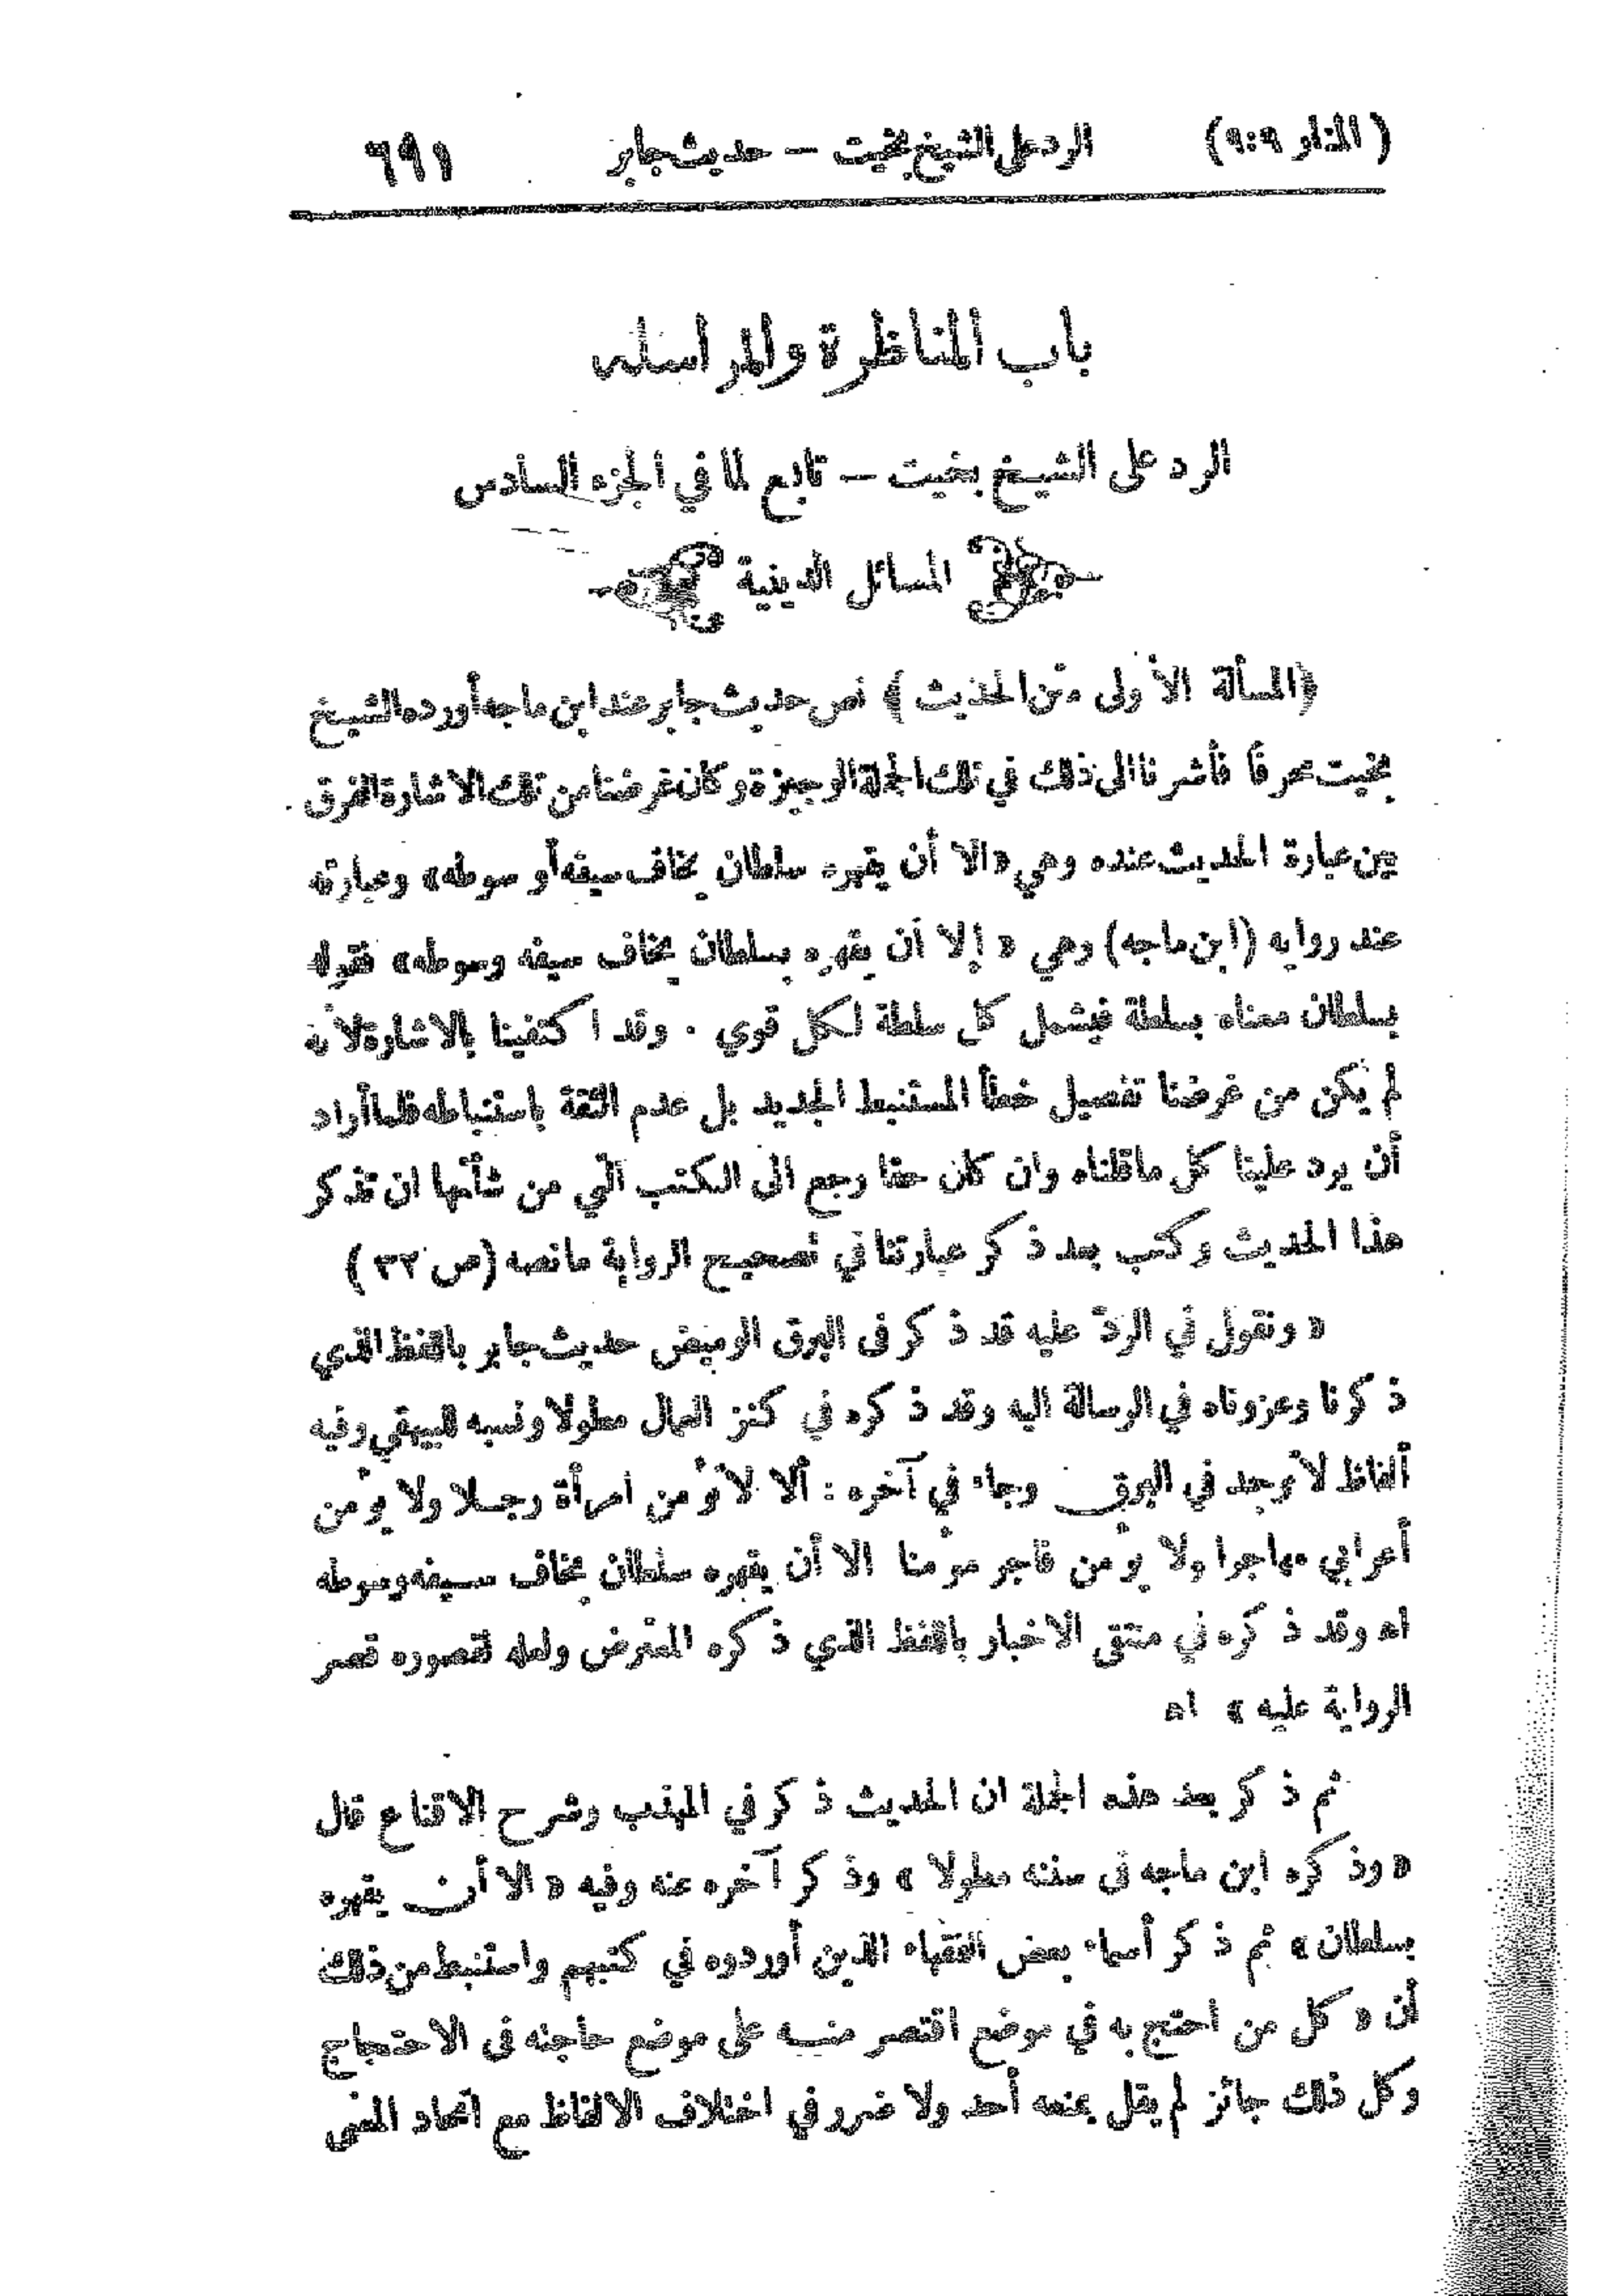 (المنار ٩:٩) الرد على الشيخ بخيت – حديث جابر ٦٩١
باب المناظرة والمراسلة
الرد على الشيخ بخيت – تابع لما في الجزء السادس
المسائل الدينية
(المسألة الأولى متن الحديث) نص حديث جابر عند ابن ماجه أورده الشيخ
بخيت محرفاً فأشرنا الى ذلك في تلك الجملة الوجيزة وكان غرضنا من تلك الاشارة الفرق
بين عبارة الحديث عنده وهي «الا أن يقهره سلطان يخاف سيفه أو سوطه» وعبارته
عند روايه (ابن ماجه) وهي « إلا أن يقهره بسلطان يخاف سيفه وسوطه» فقوله
بسلطان معناه بسلطة فيشمل كل سلطة لكل قوي . وقد اكتفينا بالاشارة لأنه
لم يكن من غرضنا تفصيل خطأ المستنبط الجديد بل عدم الثقة باستنباطه فلما أراد
أن يرد علينا كل ماقلناه وان كان حقا رجع الى الكتب التي من شأنها ان تذكر
هذا الحديث وكتب بعد ذكر عبارتنا في تصحيح الرواية مانصه (ص ٣٢)
« ونقول في الردّ عليه قد ذكر فى البرق الوميض حديث جابر باللفظ الذي
ذكرنا وعزوناه في الرسالة اليه وقد ذكره في كنز العمال مطولا ونسبه للبيهقي وفيه
ألفاظ لا توجد في البرق وجاء في آخره : ألا لا تؤمن امرأة رجلا ولا يؤمن
أعرابي مهاجرا ولا يؤمن فاجر مؤمنا الا أن يقهره سلطان يخاف سيفه وسوطه
اه وقد ذكره في منتقى الاخبار باللفظ الذي ذكره المعترض ولعله لقصوره قصر
الرواية عليه » اه
ثم ذكر بعد هذه الجملة ان الحديث ذكر في المهذب وشرح الاقناع قال
« وذكره ابن ماجه فى سننه مطولا » وذكر آخره عنه وفيه « الا أن يقهره
بسلطان » ثم ذكر أسماء بعض الفقهاء الذين أوردوه في كتبهم واستنبط من ذلك
أن « كل من احتج به في موضع اقتصر منه على موضع حاجته فى الاحتجاج
وكل ذلك جائز لم يقل بمنعه أحد ولا ضرر في اختلاف الالفاظ مع اتحاد المعنى